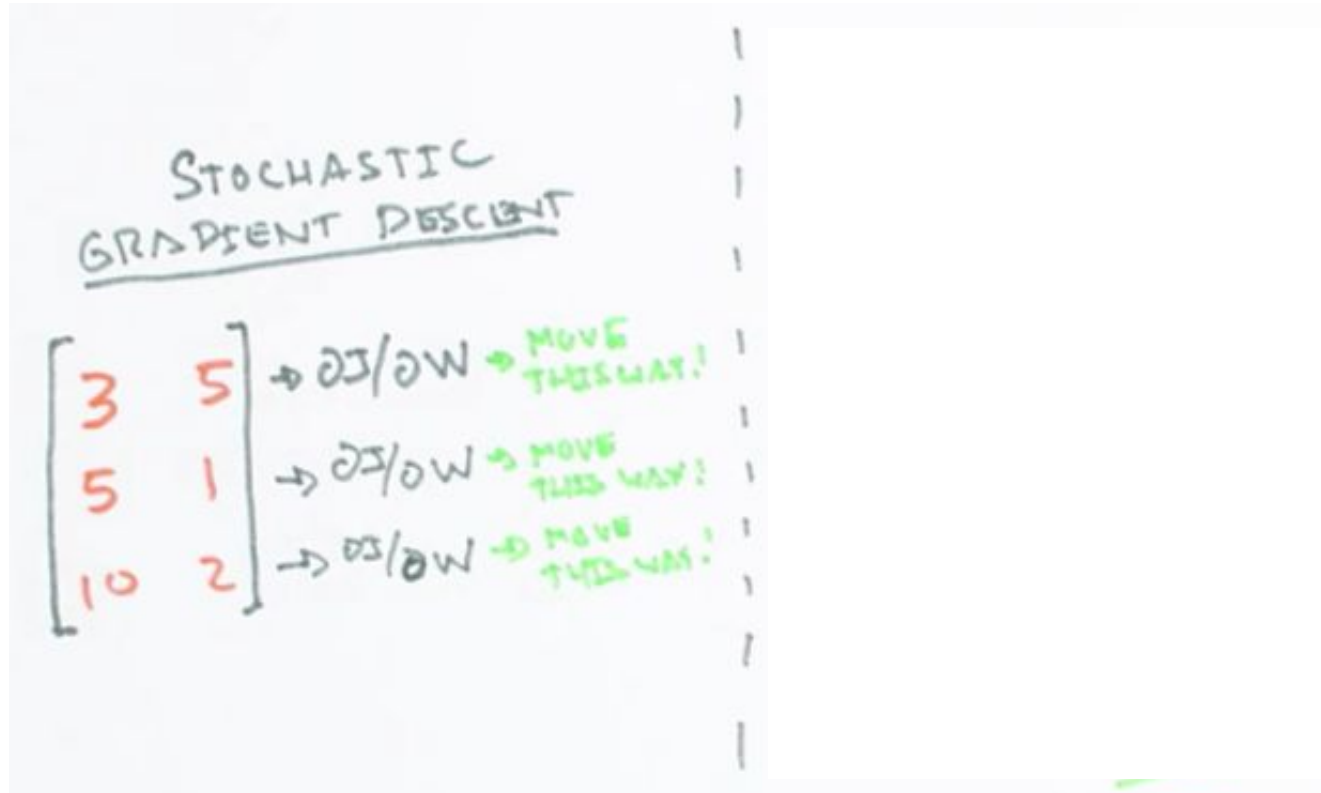 STOCHASTIC
GRADIENT DESCENT
3 5 → ∂J/∂W → MOVE
THIS WAY!
5 1 → ∂J/∂W → MOVE
THIS WAY!
10 2 → ∂J/∂W → MOVE
THIS WAY!